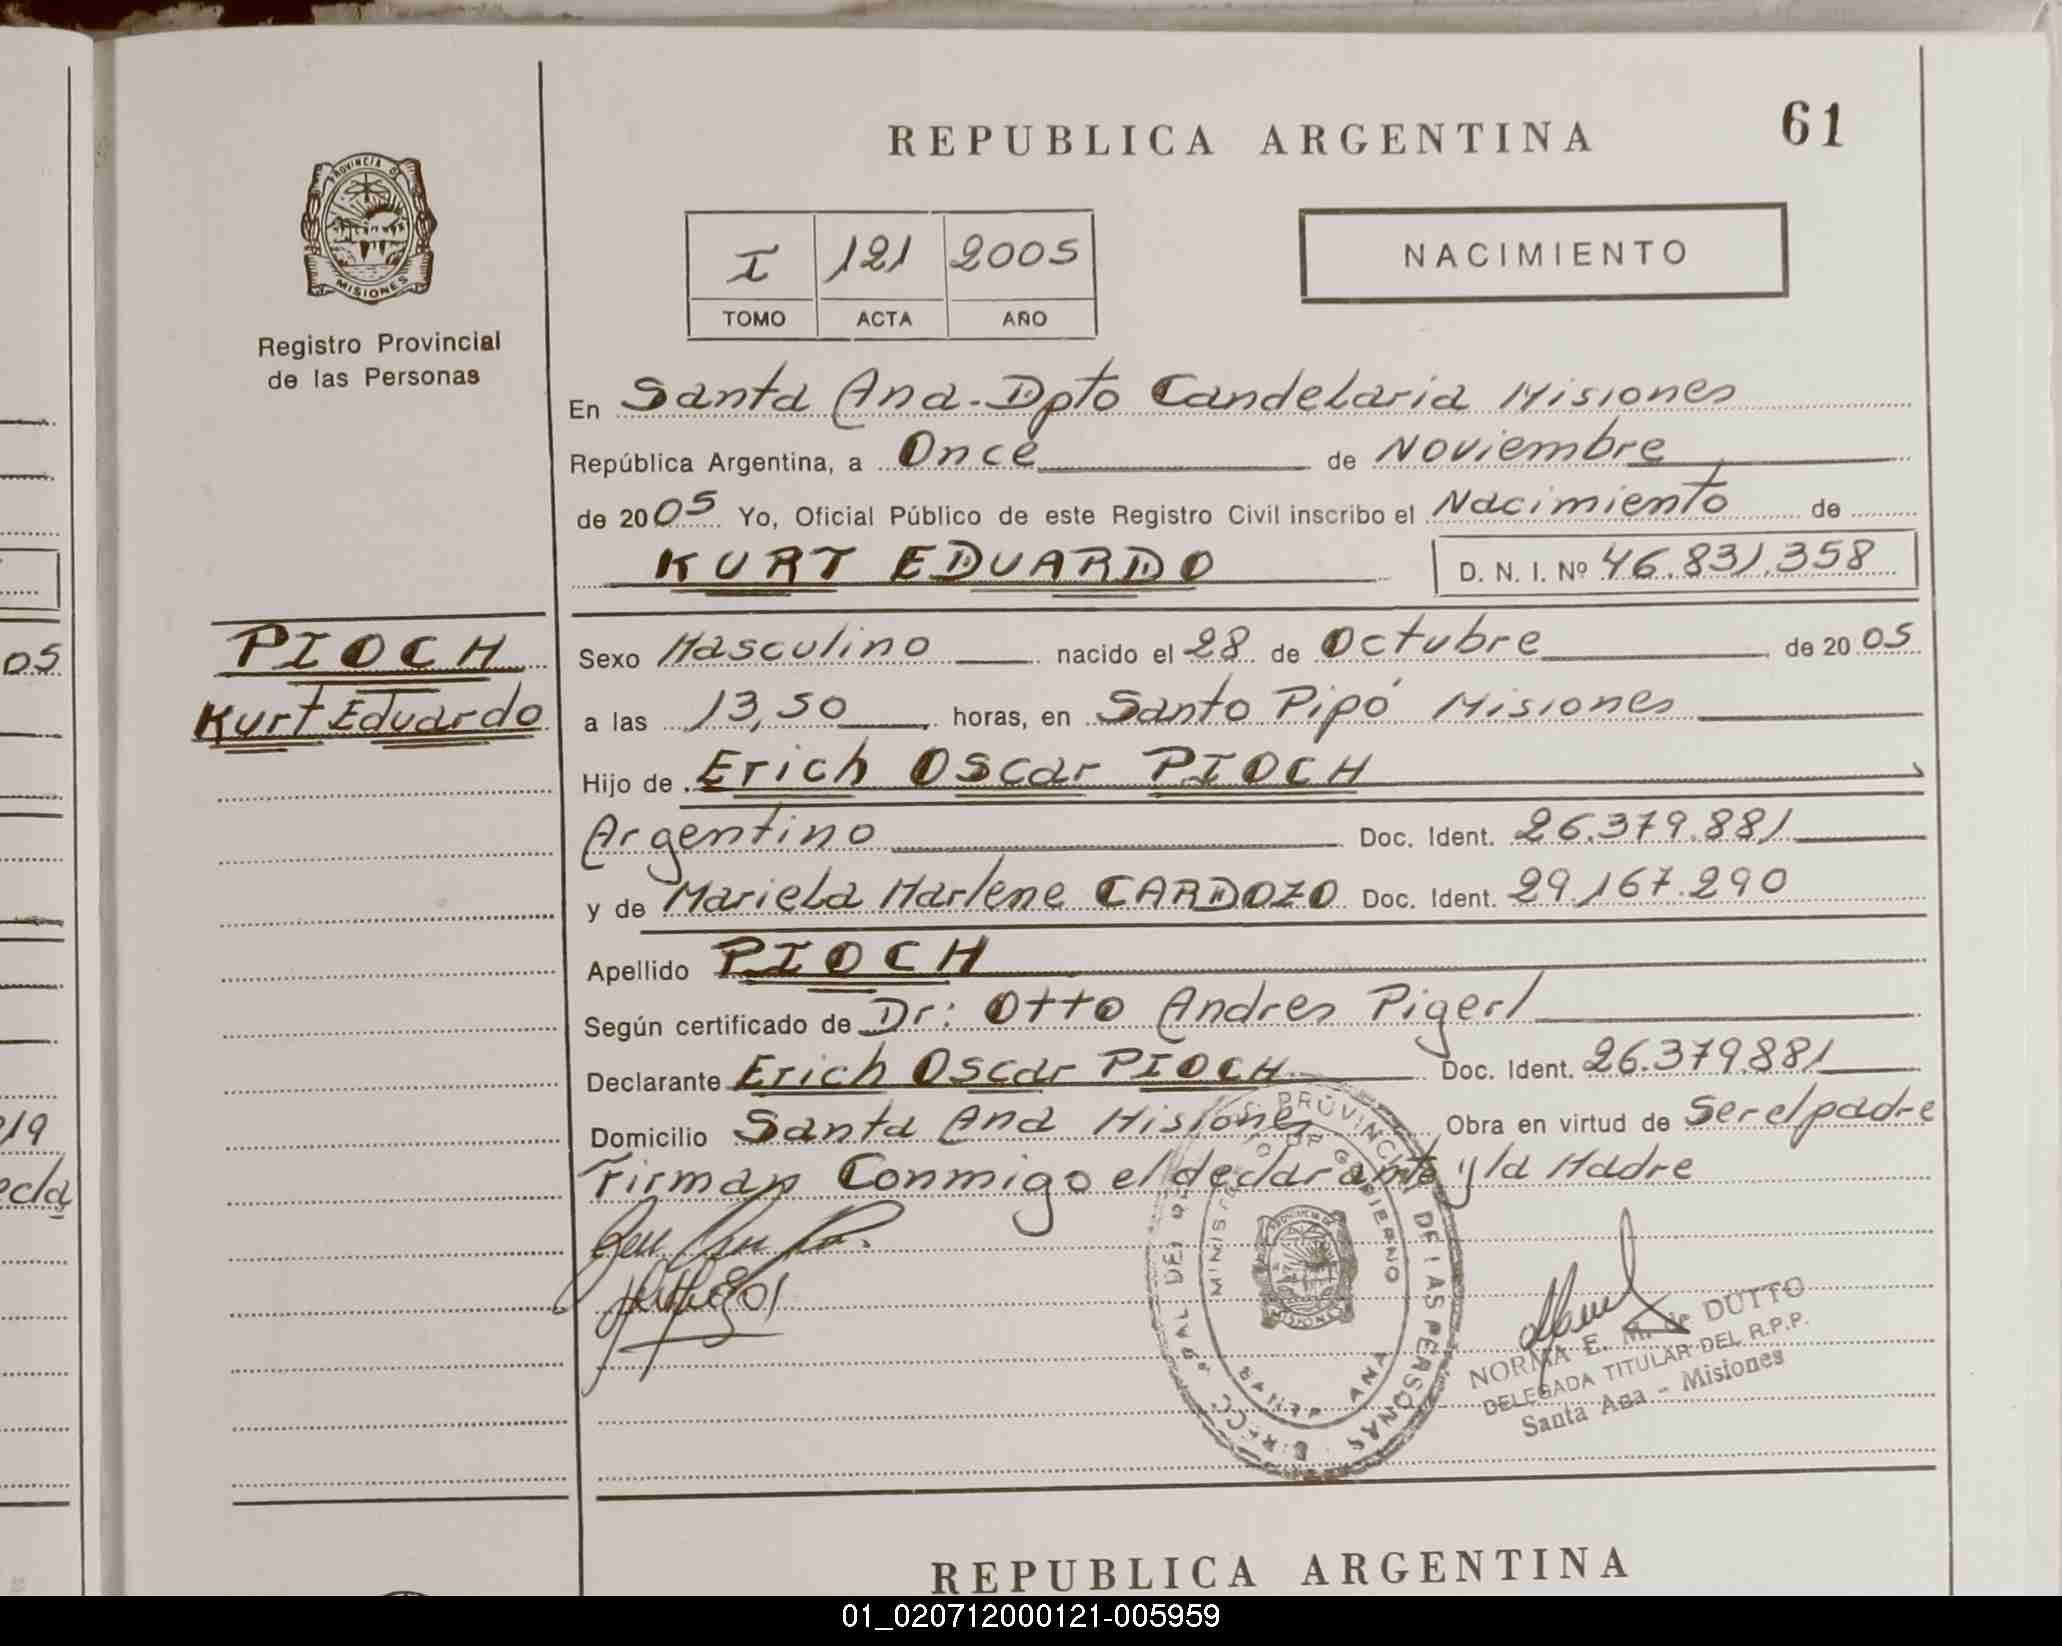 REPUBLICA ARGENTINA
61
PROVINCIA DE
MISIONES
Registro Provincial
de las Personas
I 121 2005
TOMO ACTA AÑO
NACIMIENTO
En Santa Ana - Dpto Candelaria Misiones
República Argentina, a Once de Noviembre
de 2005 Yo, Oficial Público de este Registro Civil inscribo el Nacimiento de
KURT EDUARDO D. N. I. Nº 46.831.358
PIOCH
Kurt Eduardo
Sexo Masculino nacido el 28 de Octubre de 2005
a las 13,50 horas, en Santo Pipó Misiones
Hijo de Erich Oscar PIOCH
Argentino Doc. Ident. 26.379.881
y de Mariela Marlene CARDOZO Doc. Ident. 29.167.290
Apellido PIOCH
Según certificado de Dr: Otto Andres Pigerl
Declarante Erich Oscar PIOCH Doc. Ident. 26.379.881
Domicilio Santa Ana Misiones Obra en virtud de Ser el padre
Firman Conmigo el declarante y la Madre
PROVINCIAL DE LAS PERSONAS
MINISTERIO DE GOBIERNO
SANTA ANA
MISIONES
NORMA E. M. de DUTTO
DELEGADA TITULAR DEL R.P.P.
Santa Ana - Misiones
REPUBLICA ARGENTINA
05
19
01_020712000121-005959